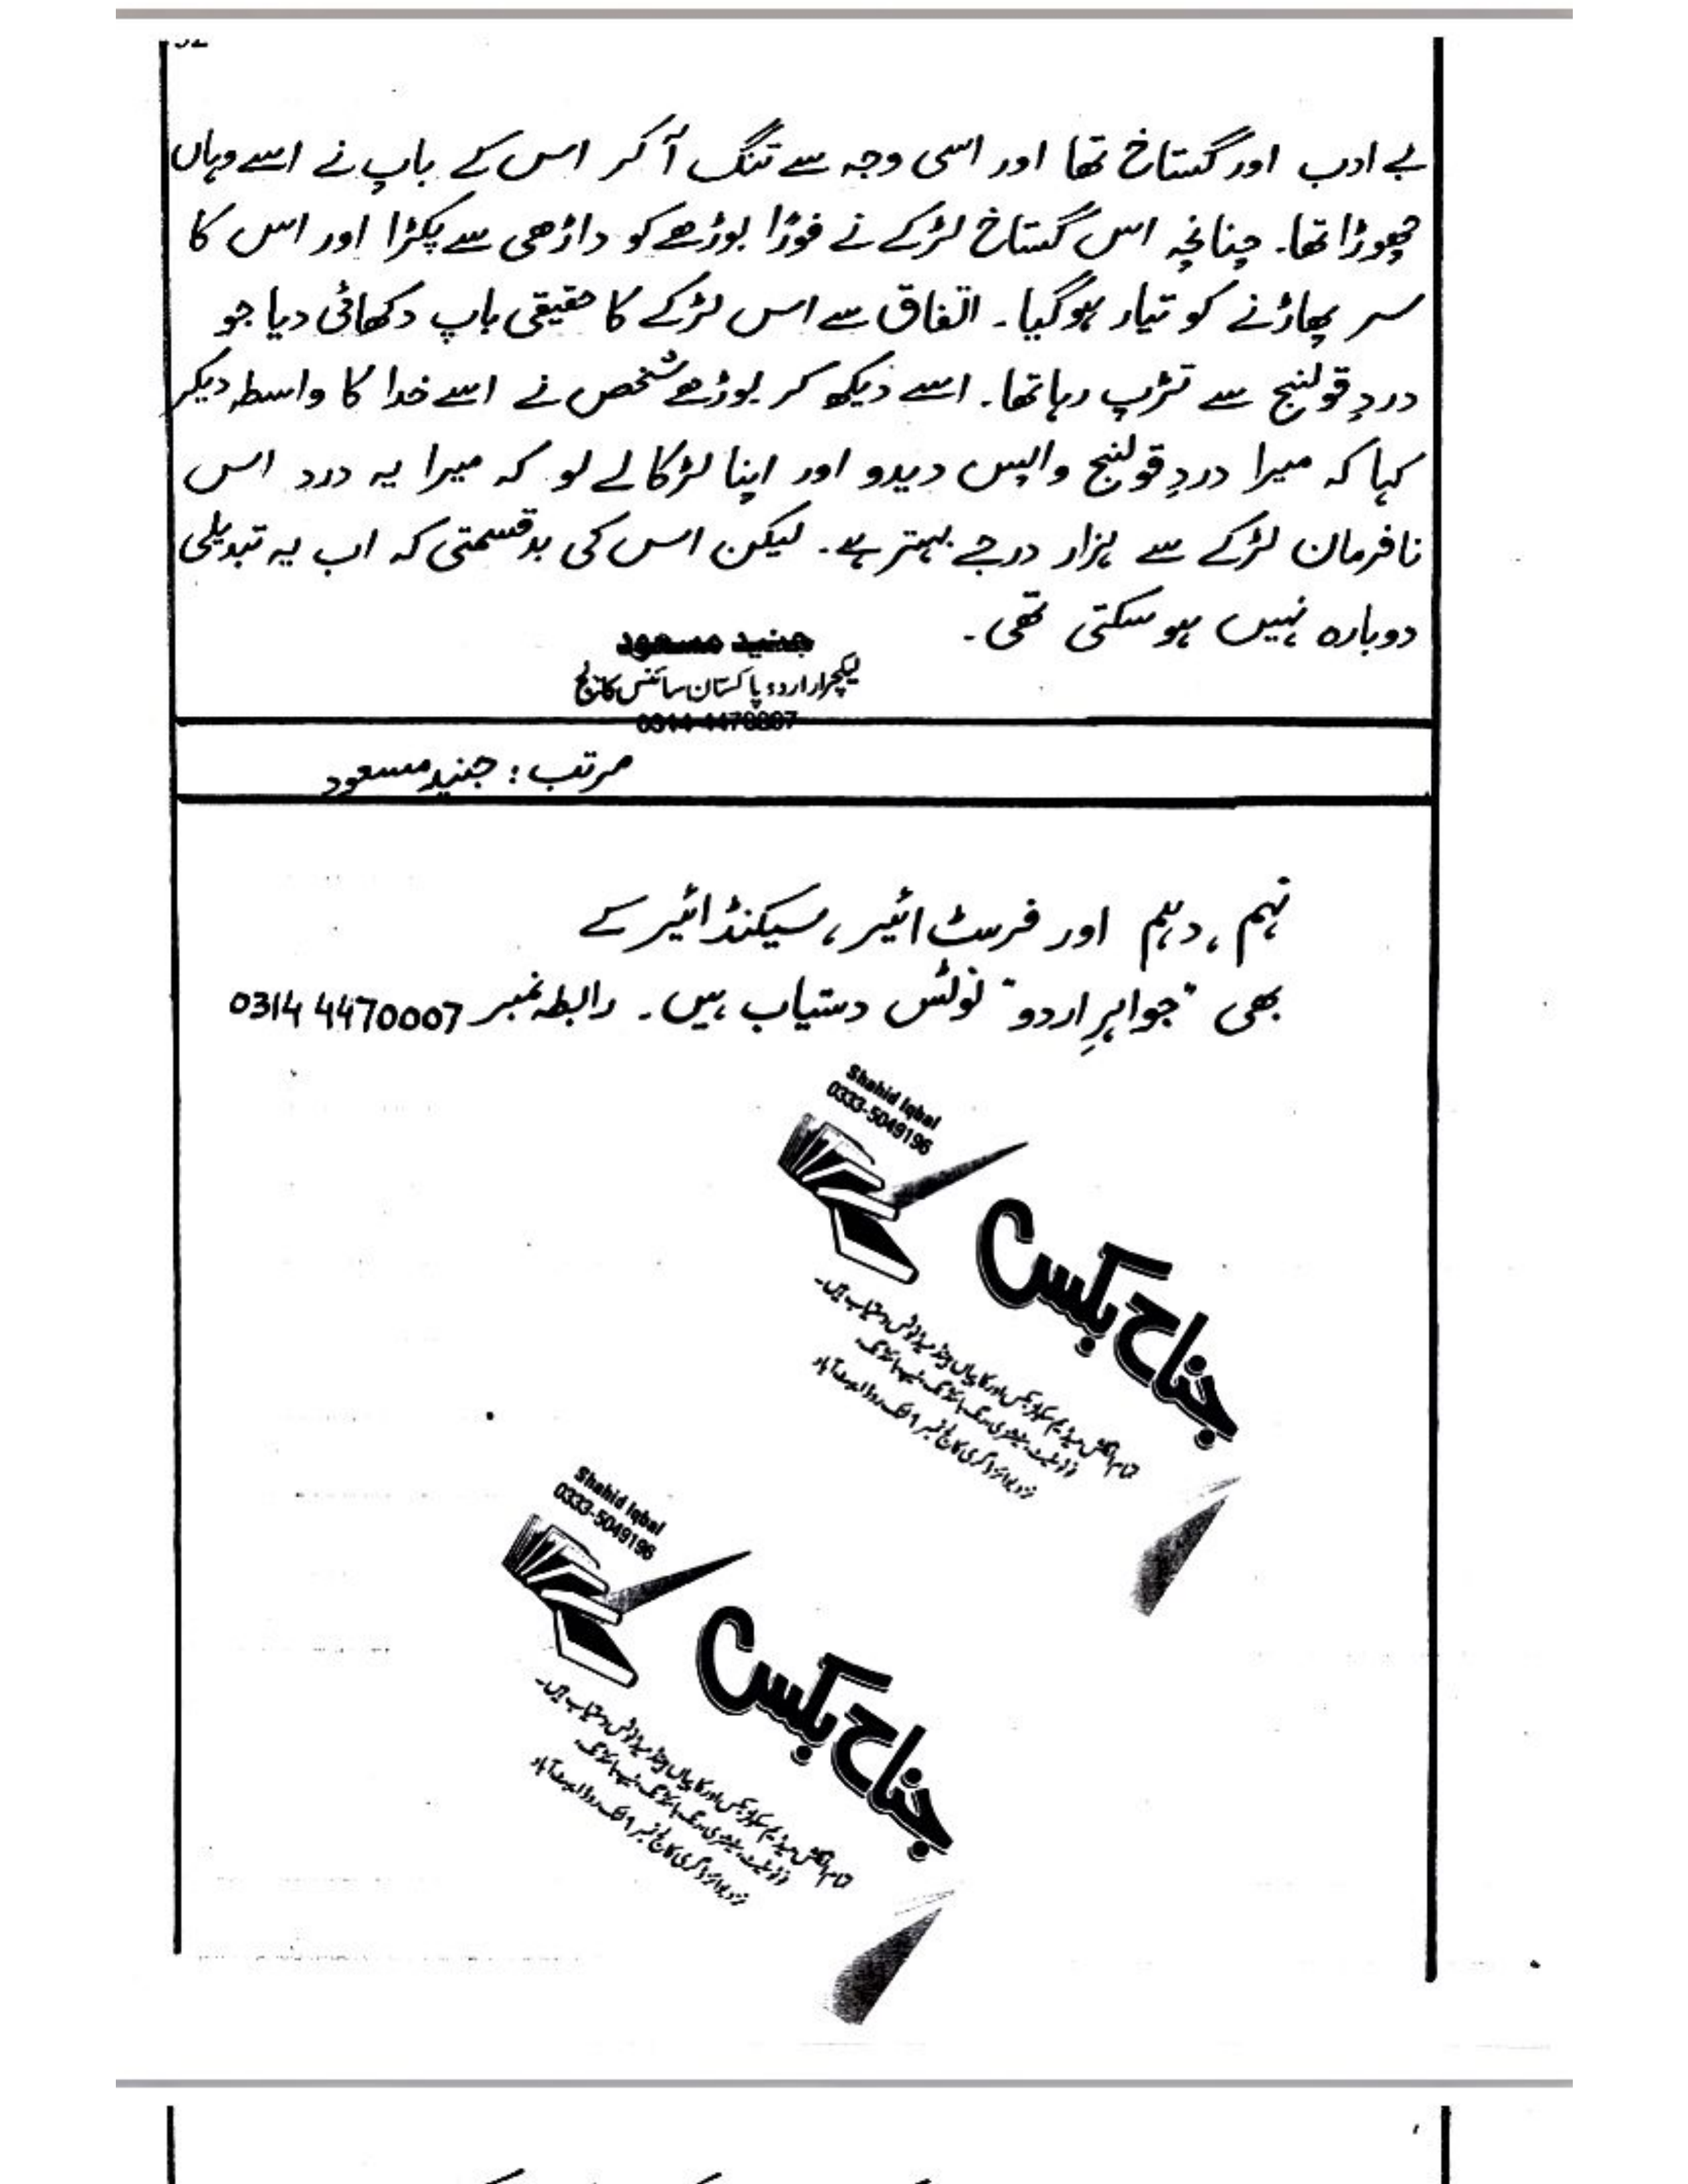 بے ادب اور گستاخ تھا اور اسی وجہ سے تنگ آ کر اس کے باپ نے اسے وہاں
چھوڑا تھا۔ چنانچہ اس گستاخ لڑکے نے فوراً بوڑھے کو داڑھی سے پکڑا اور اس کا
سر پھاڑنے کو تیار ہوگیا۔ اتفاق سے اس لڑکے کا حقیقی باپ دکھائی دیا جو
دردِ قولنج سے تڑپ رہا تھا۔ اسے دیکھ کر بوڑھے شخص نے اسے خدا کا واسطہ دیکر
کہا کہ میرا دردِ قولنج واپس دیدو اور اپنا لڑکا لے لو کہ میرا یہ درد اس
نافرمان لڑکے سے ہزار درجے بہتر ہے۔ لیکن اس کی بدقسمتی کہ اب یہ تبدیلی
دوبارہ نہیں ہو سکتی تھی۔
جنید مسعود
لیکچرار اردو پاکستان سائنس کالج
مرتب : جنید مسعود
نہم ، دہم اور فرسٹ ائیر ، سیکنڈ ائیر کے
بھی "جواہرِ اردو" نوٹس دستیاب ہیں۔ رابطہ نمبر 0314 4470007
Shahid Iqbal
0333-5049196
جناح بکس
Shahid Iqbal
0333-5049196
جناح بکس